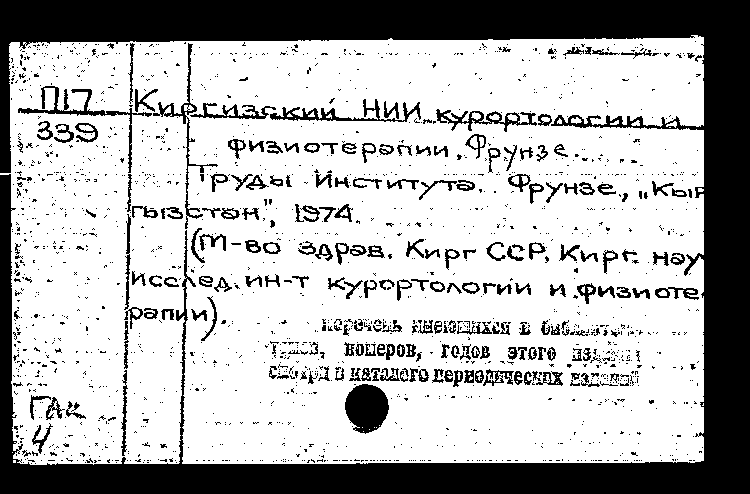 П17 Киргизский НИИ курортологии и
339 физиотерапии. Фрунзе.
Труды Института. Фрунзе, „Кыр
гызстан", 1974.
(М-во здрав. Кирг ССР. Кирг. науч
исслед. ин-т курортологии и физиоте
рапии).
перечень имеющихся в
томов, номеров, годов этого
смотри в каталоге периодических изданий
4